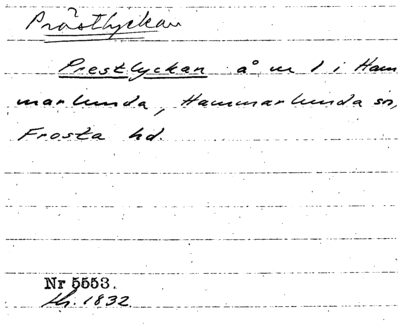 Prästlyckan
Prestlyckan å nr 1 i Ham
marlunda, Hammarlunda sn,
Frosta hd.
Nr 5553.
1832